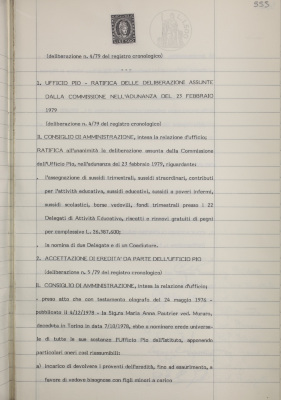 553.
(deliberazione n. 4/79 del registro cronologico)
1. UFFICIO PIO - RATIFICA DELLE DELIBERAZIONI ASSUNTE
DALLA COMMISSIONE NELL'ADUNANZA DEL 23 FEBBRAIO
1979
(deliberazione n. 4/79 del registro cronologico)
IL CONSIGLIO DI AMMINISTRAZIONE, intesa la relazione d'ufficio;
RATIFICA all'unanimità le deliberazioni assunte dalla Commissione
dell'Ufficio Pio, nell'adunanza del 23 febbraio 1979, riguardante:
l'assegnazione di sussidi trimestrali, sussidi straordinari, contributi
per l'attività educativa, sussidi educativi, sussidi a poveri infermi,
sussidi scolastici, borse vedovili, fondi trimestrali presso i 22
Delegati di Attività Educativa, riscatti e rinnovi gratuiti di pegni
per complessive L. 26.987.600;
la nomina di due Delegate e di un Coadiutore.
2. ACCETTAZIONE DI EREDITA' DA PARTE DELL'UFFICIO PIO
(deliberazione n. 5/79 del registro cronologico)
IL CONSIGLIO DI AMMINISTRAZIONE, intesa la relazione d'ufficio;
- preso atto che con testamento olografo del 24 maggio 1976 -
pubblicato il 4/11/1978 - la Sig.ra Maria Anna ved.
deceduta in Torino in data 7/10/1978, ebbe a nominare erede universa-
le di tutte le sue sostanze l'Ufficio Pio dell'Istituto, apponendo
particolari oneri così riassumibili:
a) incarico di devolvere i proventi dell'eredità, fino ad esaurimento, a
favore di vedove bisognose con figli minori a carico